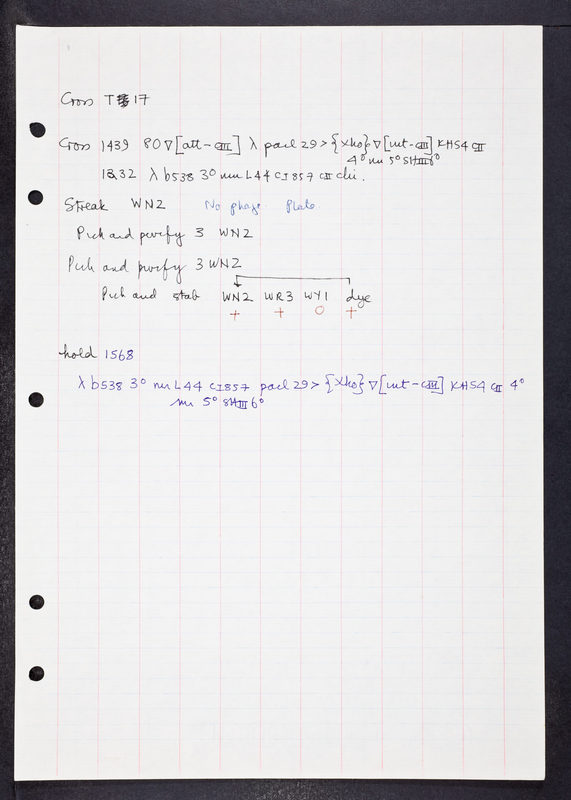 Cross T 17
Cross 1439 80 ∇[att-cIII] λ pacl 29 > {xho} ∇[int-cIII] KH54 cII
4° nin 5° SHIII 6°
1232 λ b538 3° nin L44 cI857 cII chi.
Streak WN2 No phage Plate
Pick and purify 3 WN2
Pick and purify 3 WN2
Pick and stab WN2 WR3 WY1 dye
+ + O +
hold 1568
λ b538 3° nin L44 cI857 pacl 29 > {xho} ∇[int-cIII] KH54 cII 4°
nin 5° SHIII 6°